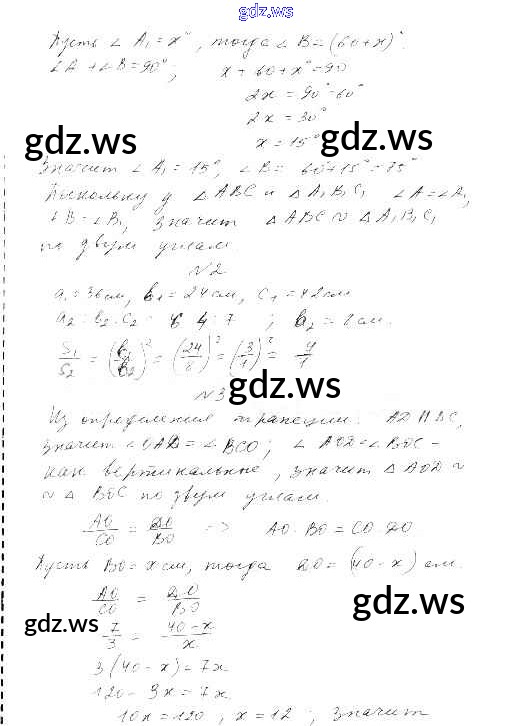 gdz.ws
Пусть ∠ A₁ = x°, тогда ∠ B = (60+x)°.
∠A + ∠B = 90°; x + 60 + x° = 90
2x = 90° - 60°
2x = 30°
x = 15°
gdz.ws gdz.ws
Значит ∠ A₁ = 15°, ∠ B = 60°+15° = 75°
Поскольку у △ ABC и △ A₁B₁C₁ ∠ A = ∠ A₁,
∠ B = ∠ B₁, значит △ ABC ∾ △ A₁B₁C₁
по двум углам.
N 2
a₁ = 36 см, b₁ = 24 см, c₁ = 42 см
a₂ : b₂ : c₂ = 6 4 : 7 ; b₂ = 8 см.
S₁/S₂ = (b₁/b₂)² = (24/8)² = (3/1)² = 9/1
N 3
gdz.ws
Из определения трапеции: AD ∥ BC,
значит ∠ OAD = ∠ BCO; ∠ AOD = ∠ BOC -
как вертикальные, значит △ AOD ∾
∾ △ BOC по двум углам.
AO/CO = DO/BO => AO · BO = CO DO
Пусть BO = x см, тогда DO = (40 - x) см.
AO/CO = DO/BO
gdz.ws
gdz.ws
7/3 = 40-x/x
3(40 - x) = 7x
120 - 3x = 7x
10x = 120, x = 12 ; значит